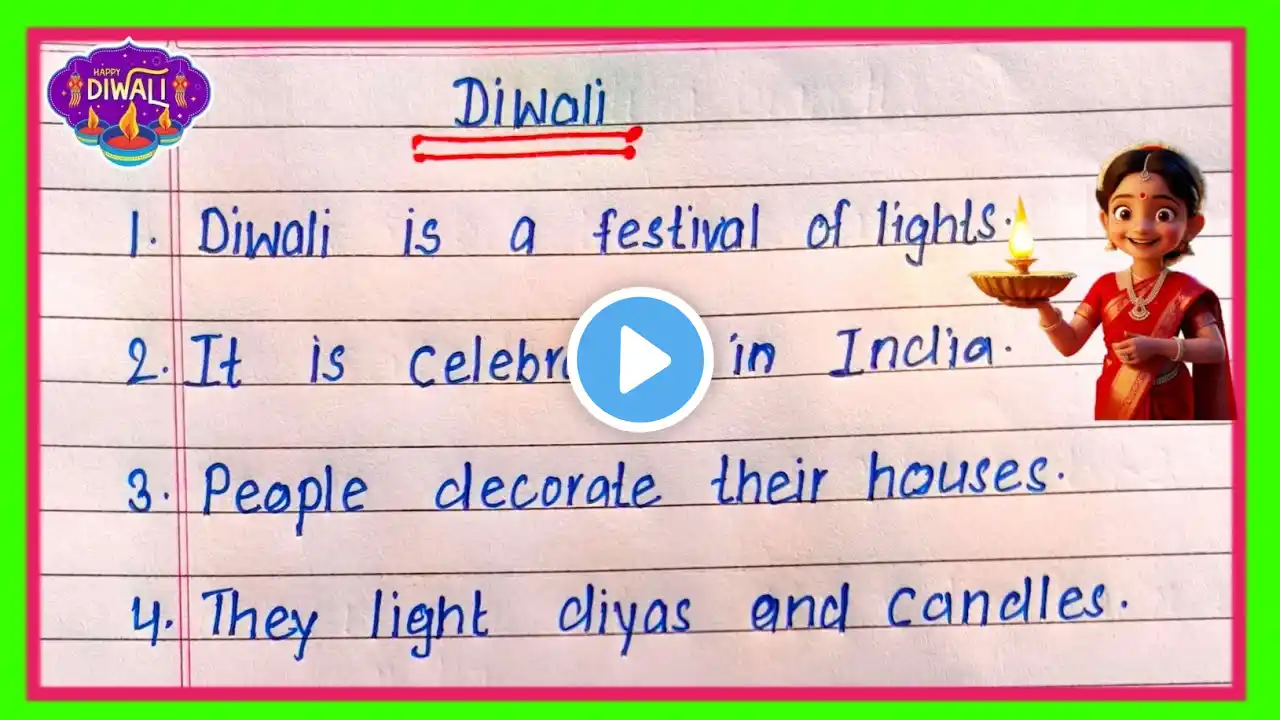 HAPPY
DIWALI
Diwali
1. Diwali is a festival of lights.
2. It is in India.
3. People decorate their houses.
4. They light diyas and candles.